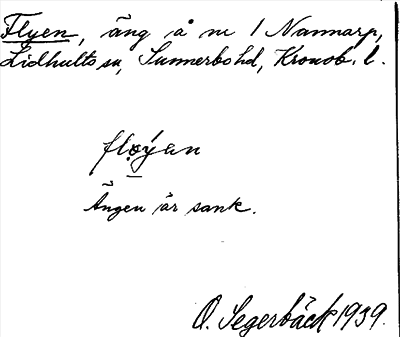 Flyen, äng å nr 1 Nannarp,
Lidhults sn, Sunnerbo hd, Kronob. l.
fløýen
Ängen är sank.
O. Segerbäck 1939.